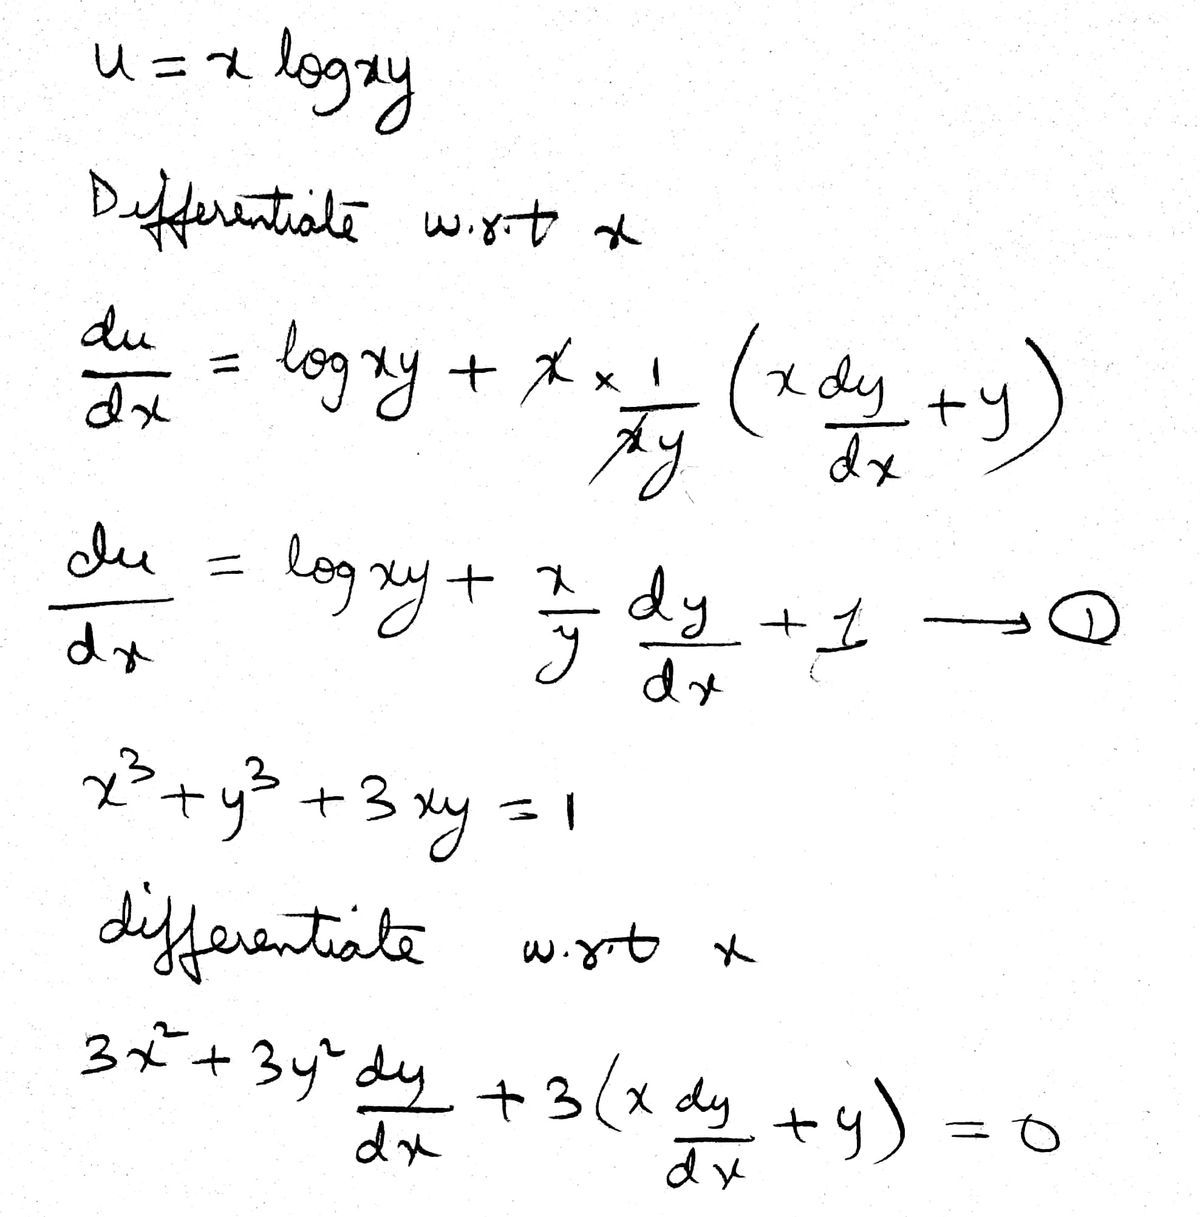 u = x log xy
Differentiate w.r.t x
du/dx = log xy + x × 1/xy (x dy/dx + y)
du/dx = log xy + x/y dy/dx + 1 → ①
x³ + y³ + 3xy = 1
differentiate w.r.t x
3x² + 3y² dy/dx + 3(x dy/dx + y) = 0